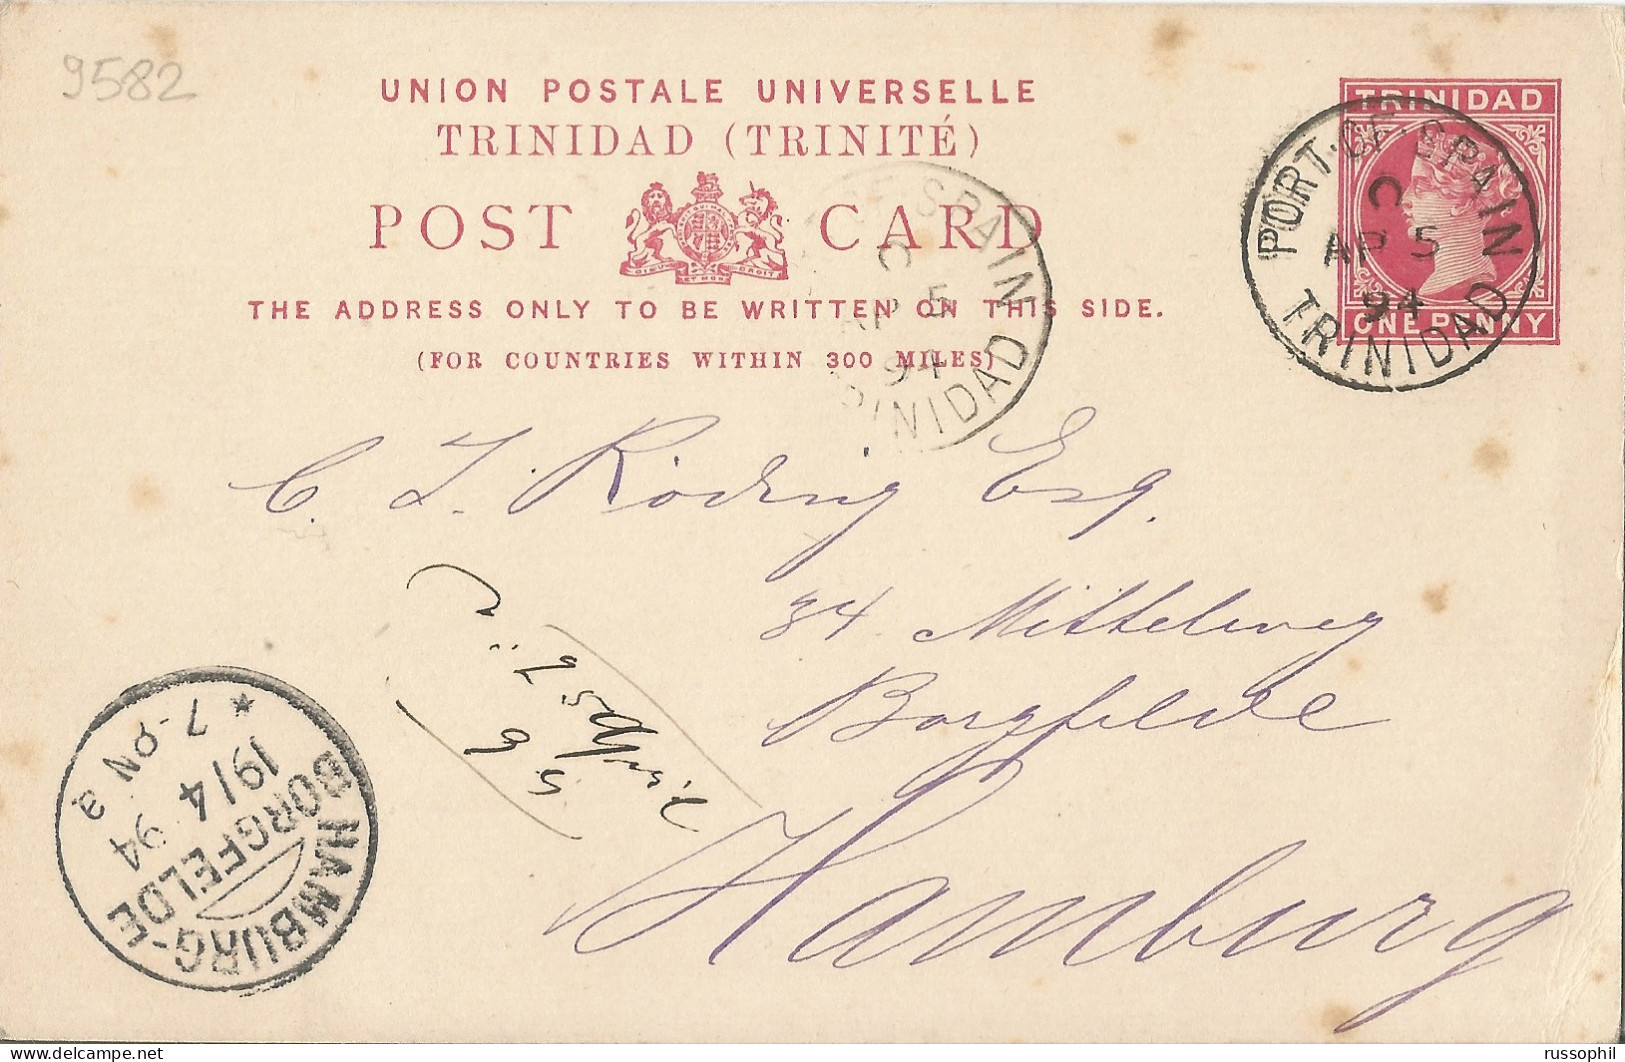 9582
UNION POSTALE UNIVERSELLE
TRINIDAD (TRINITÉ)
POST CARD
DIEU ET MON DROIT
THE ADDRESS ONLY TO BE WRITTEN ON THIS SIDE.
(FOR COUNTRIES WITHIN 300 MILES)
TRINIDAD
ONE PENNY
PORT-OF-SPAIN
C
AP 5
94
TRINIDAD
OF-SPAIN
C
AP 5
94
INIDAD
C. T. Röding Esq.
34 Mittelweg
Borgfelde
Hamburg
HAMBURG-
BORGFELDE
19/4 94
7-8 N a
russophil